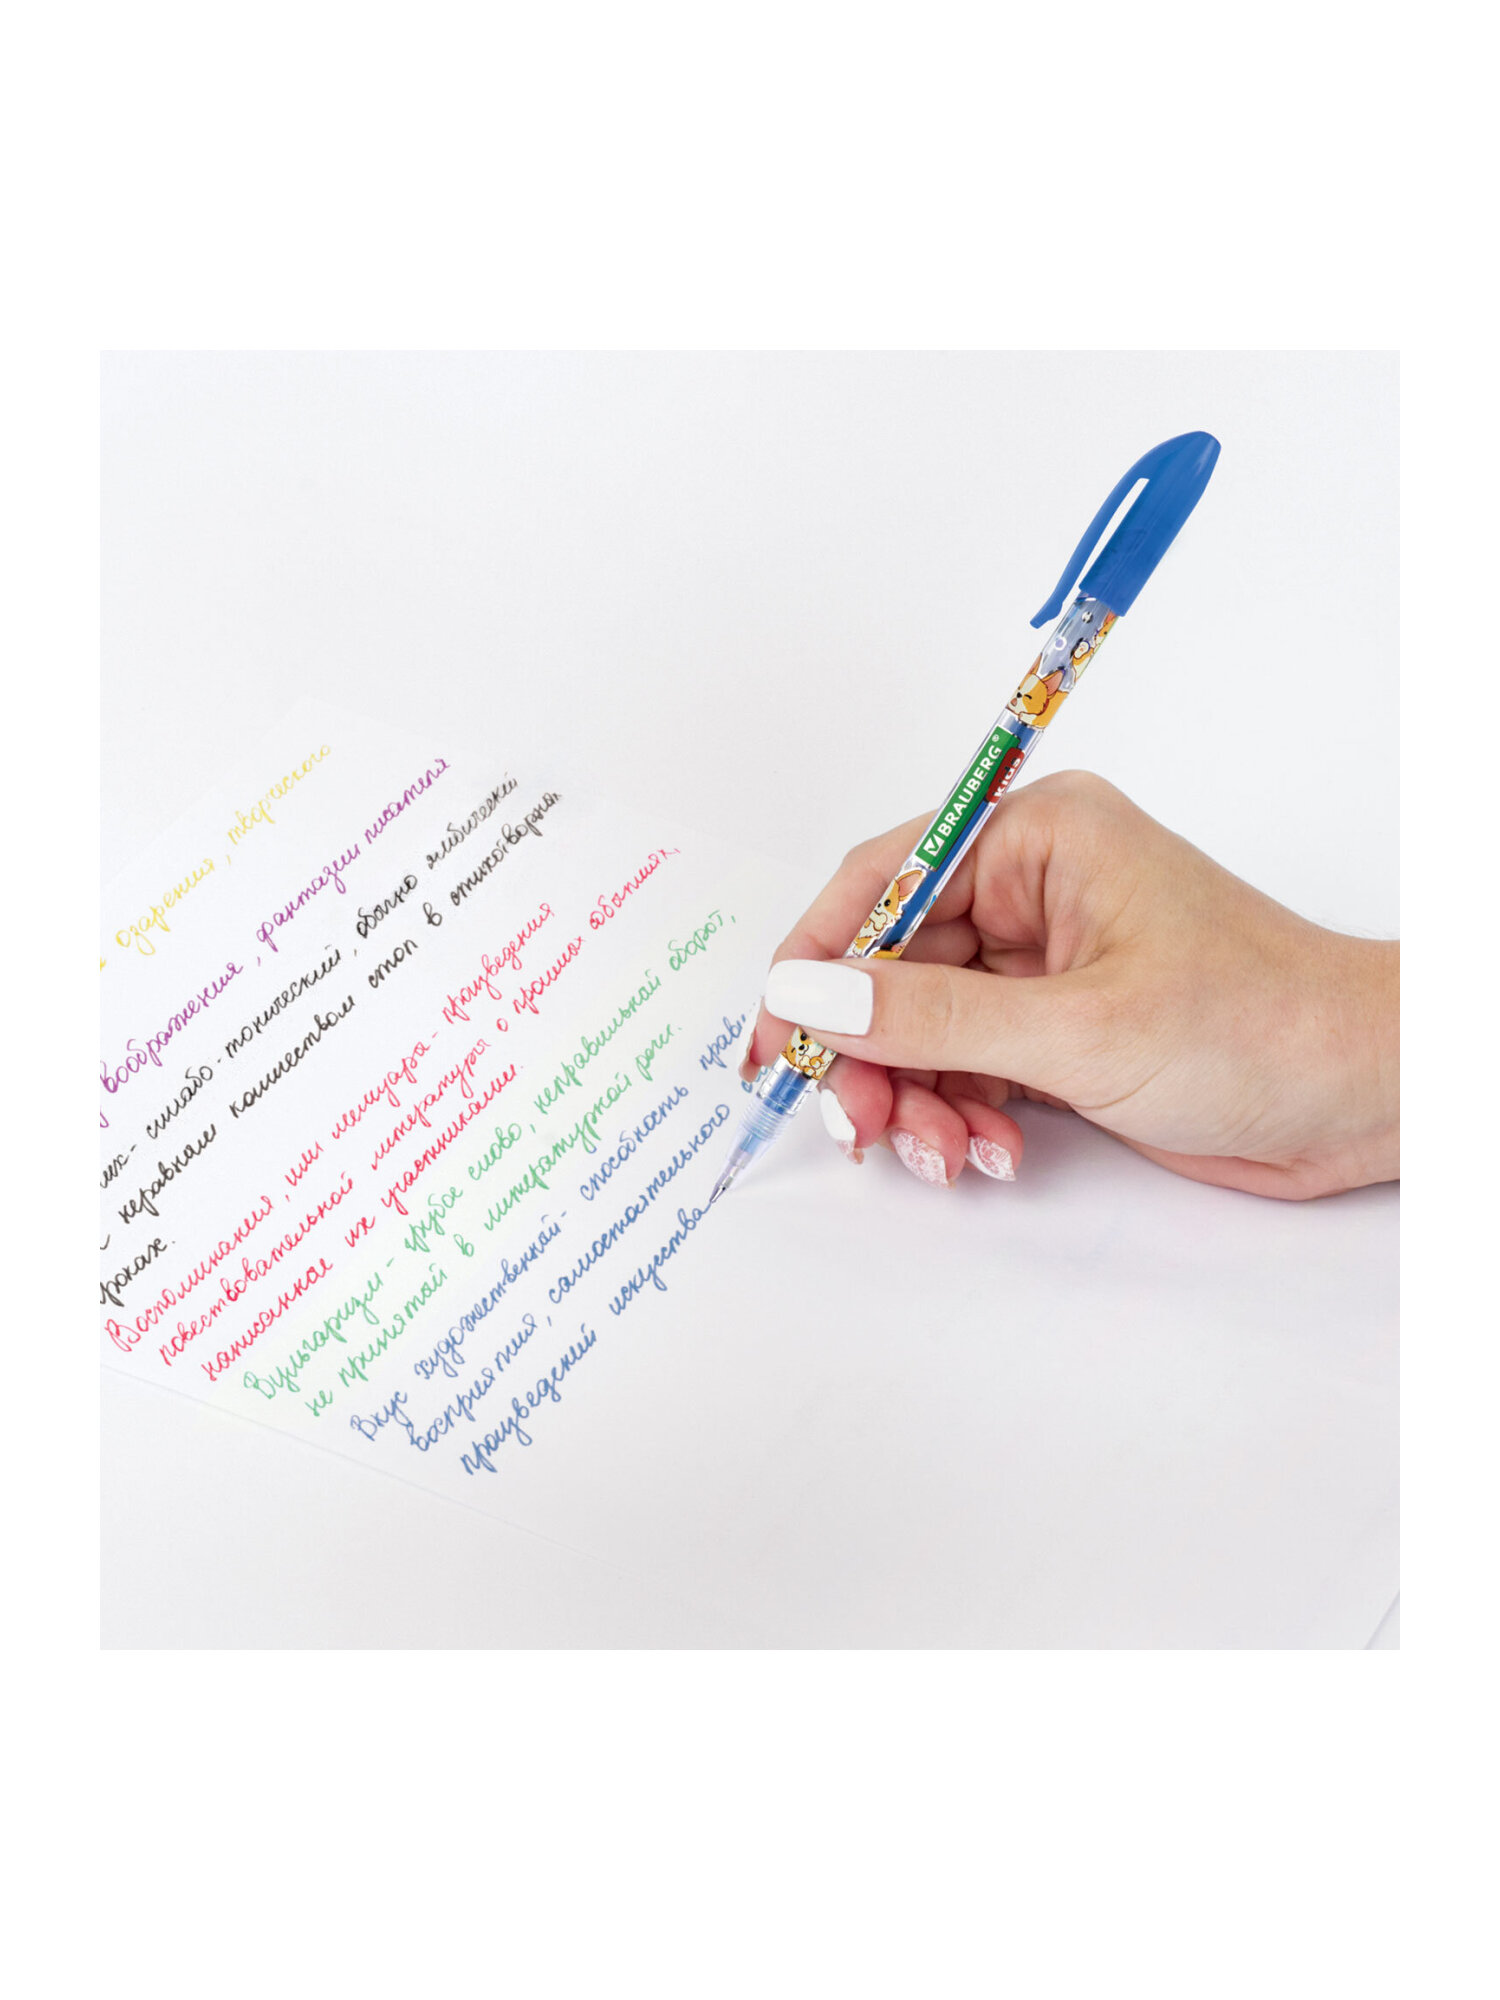 озарения, творческого
воображения, фантазии писателя
их- силлабо-тонический, обычно ямбический
с неравным количеством стоп в стихотворных
роках.
Воспоминания, или мемуара- произведения
повествовательной литературы о прошлых событиях,
написанное их участниками.
Вульгаризм- грубое слово, неправильный оборот,
не принятой в литературной речи.
Вкус художественный- способность прави
восприятия, самостоятельного
произведений искусства
BRAUBERG®
KIDS